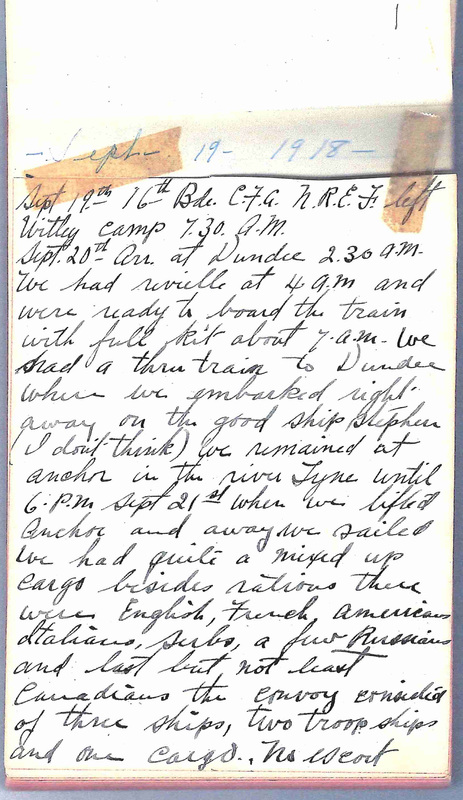 1
- Sept - 19 - 1918 -
Sept 19th 16th Bde. C.F.A. N.R.E.F. left
Witley camp 7.30. A.M.
Sept. 20th Arr. at Dundee 2.30 A.M.
We had revielle at 4 a.m and
were ready to board the train
with full kit about 7.a.m. We
had a thru train to Dundee
where we embarked right
away on the good ship Stephen
(I don't think) we remained at
anchor in the river Tyne until
6. P.M Sept 21st when we lifted
anchor and away we sailed
we had quite a mixed up
cargo besides rations there
were English, French, Americans
Italians, Serbs, a few Russians
and last but not least
Canadians the convoy consisted
of three ships, two troop ships
and one cargo. No escort